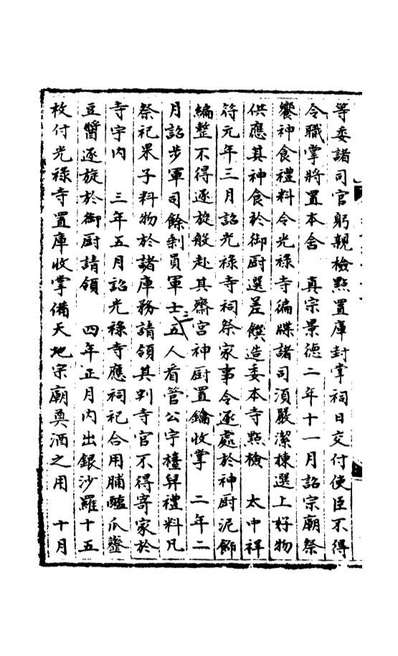 等委諸司官躬親檢㸃置庫封掌祠日交付使臣不得
令職掌將置本舍　真宗景德二年十一月詔宗廟祭
饗神食禮料令光禄寺徧牒諸司湏嚴潔揀選上好物
供應其神食於御厨選差饌造委本寺㸃檢　太中祥
符元年三月詔光禄寺祠祭家事令逐處於神厨泥飾
編整不得逐旋般赴其齋宫神厨置鑰收掌　二年二
月詔步軍司餘剩員軍士五人看管公宇檯舁禮料凡
祭祀果子料物於諸庫務請領其判寺官不得寄家於
寺宇内　三年五月詔光禄寺應祠祀合用脯醯爪虀
豆醬逐旋於御厨請領　四年正月内出銀沙羅十五
枚付光禄寺置庫收掌備天地宗廟奠酒之用　十月